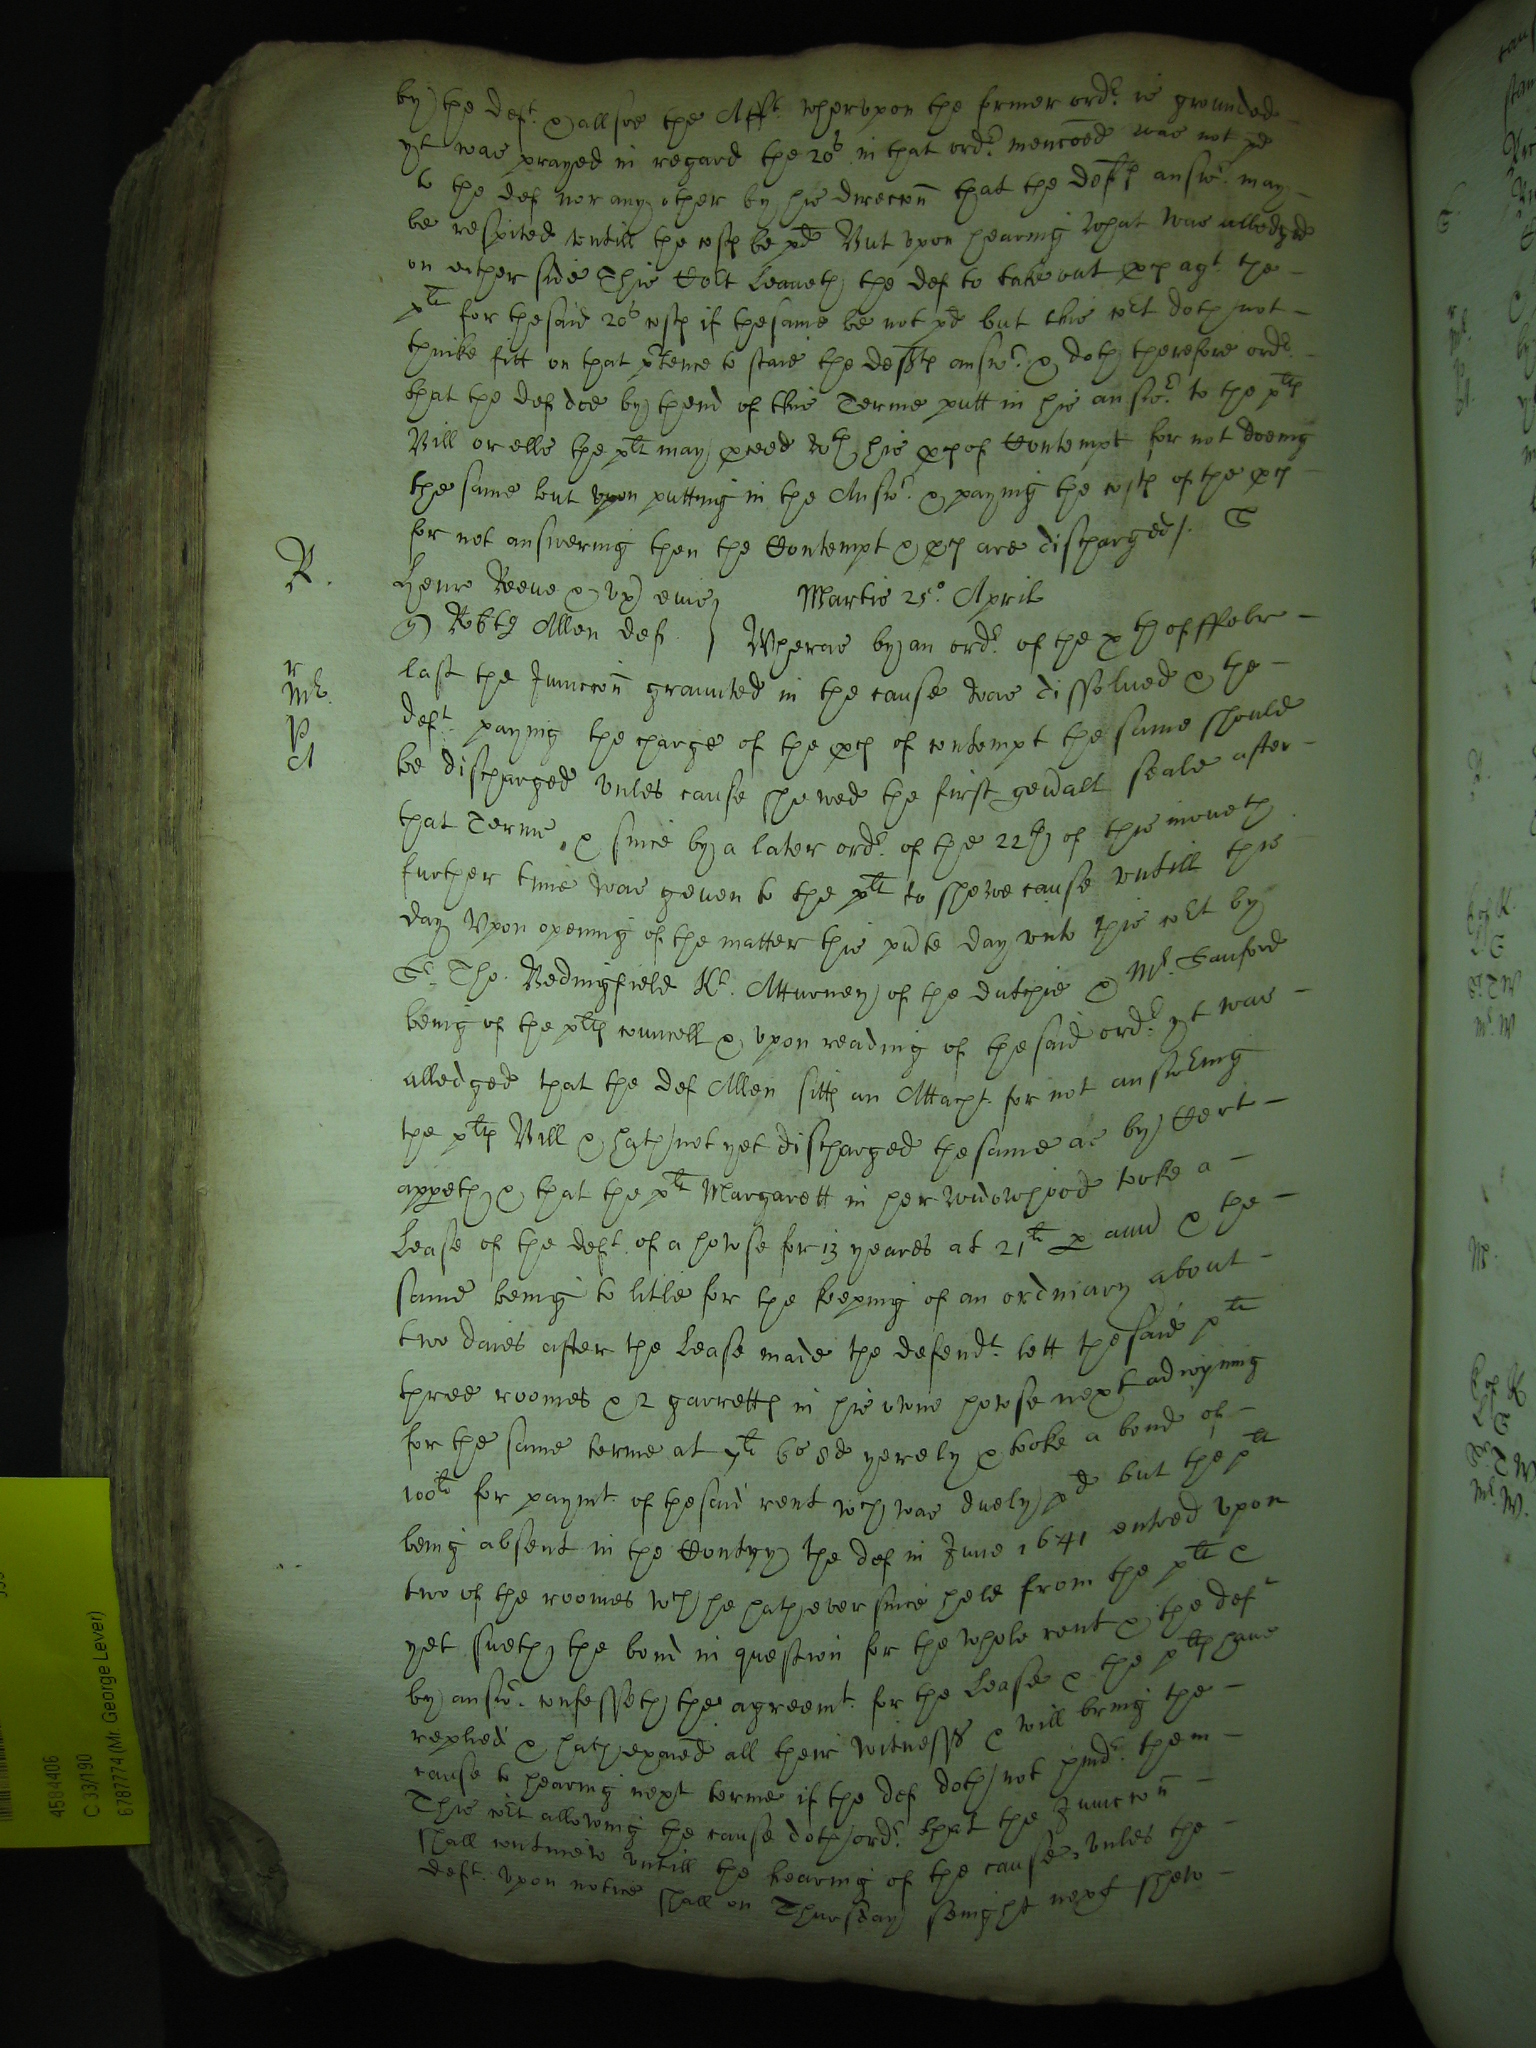 by the deft. & allsoe the Afft. wherupon the former ordr. is grounded
yt was prayed in regard the 20s in that ordr. mencoed was not pd
to the def nor any other by his direccon that the defts answr. may
be respited untill the costs be pd But upon hearing what was alledged
on either side This Co:rt Leaveth the def to take out pces agt. the
plt for the said 20s costs if the same be not pd but this cort doth not
thinke fitt on that ptence to staie the defts answr. & doth therefore ordr.
that the def doe by thend of this Terme putt in his answr. to the plts
Bill or ells the plt may pceed wth his pces of Contempt for not doeing
the same but upon putting in the Answr. & paying the costs of the pces
for not answering then the Contempt & pces are discharged /. S
R.
Henr Reeve & ux
Martis 25o. April
Robtg Allen def
Wheras by an ordr. of the xth of ffebr
r
Mr.
P
A
last the Junccon graunted in the cause was dissolved & the
deft. paying the charge of the pces of contempt the same should
be discharged unles cause shewed the first genall seale after
that Terme & since by a later ordr. of the 22th of this moneth
further time was geven to the plt to shewe cause untill this
day Upon opening of the matter this pnte day unto this cort by
Sr. Tho. Bedingfield Kt. Atturney of the dutchie & Mr. Sanford
being of the plts councell & upon reading of the said ordr. yt was
alledged that the def Allen sitts an Attacht. for not answering
the plts Bill & hath not yet discharged the same as by Cert
appeth & that the plt Margarett in her widowhood tooke a
Lease of the deft. of a howse for 13 yeares at 21li p ann & the
same being to litle for the keeping of an ordinary about
two daies after the Lease made the defendt. lett the said plt
three roomes & 2 garretts in his owne howse next adioyning
for the same terme at 7li 6s 8d yerely & tooke a bond of
100li for paymt. of the said rent wch was duely pd but the plt
being absent in the Contry the def in June 1641 entred upon
two of the roomes wch he hath ever since held from the plt &
yet sueth the bond in question for the whole rent & the deft
by answr. confesseth the agreemt. for the Lease & the plts have
replied & hath exaied all their witnesses & will bring the
cause to hearing next terme if the def doth not pvidt. them
This cort allowing the cause doth ordr. that the Junccon
shall continew untill the hearing of the cause, unles the
deft. upon notice shall on Thursday senight next shew
4584406
C 33/190
6787774 (Mr. George Lever)